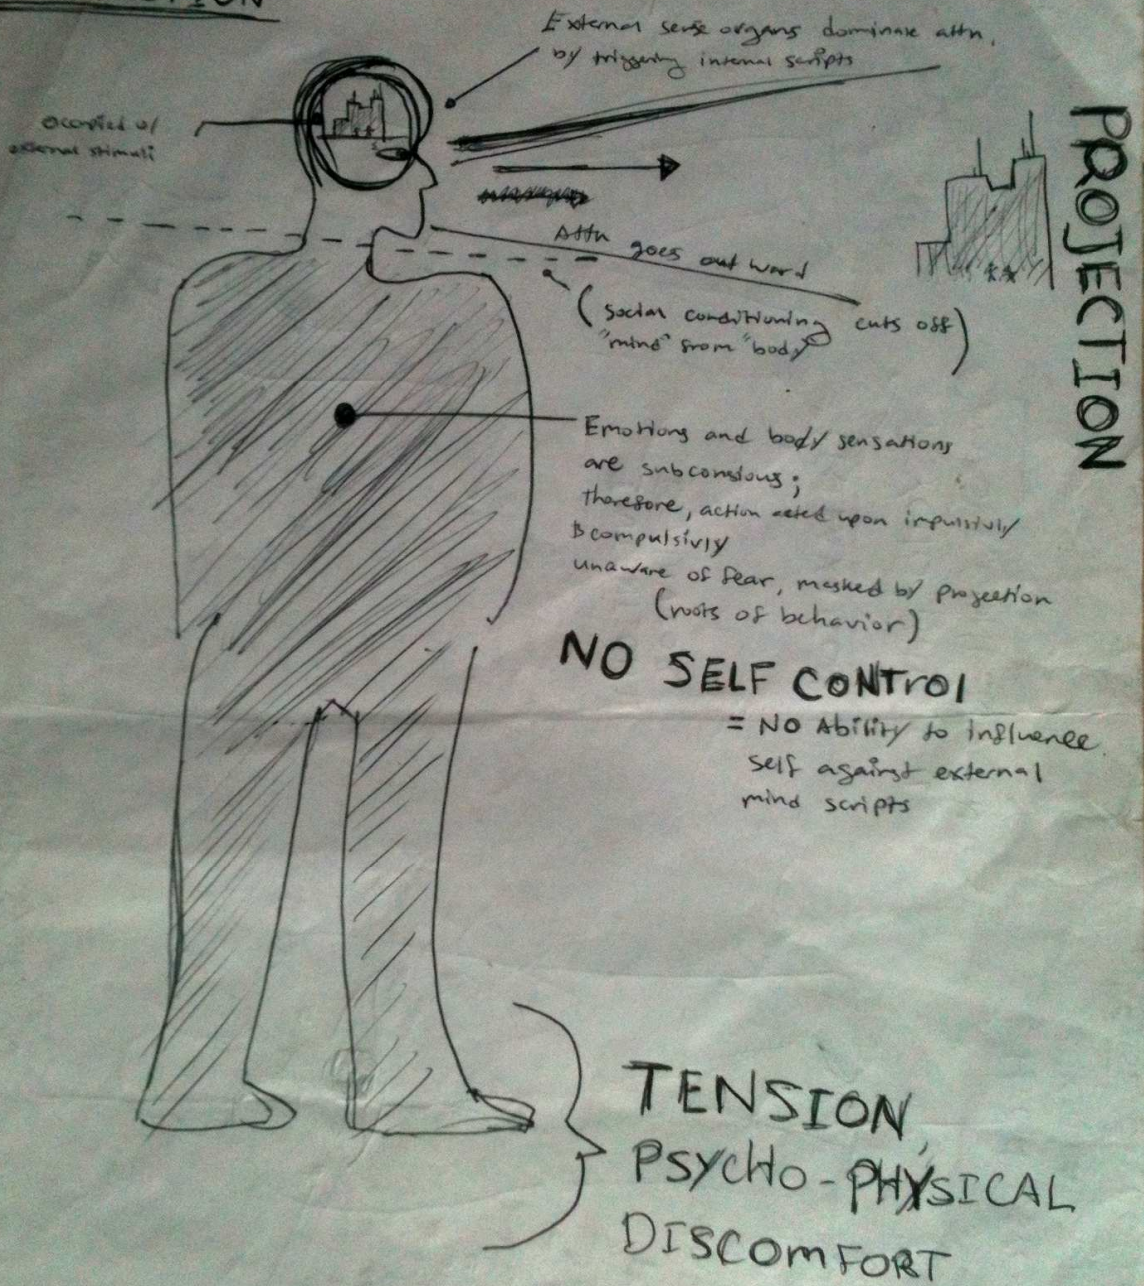 External sense organs dominate attn,
by triggering internal scripts
occupied w/
external stimuli
PROJECTION
Attn goes outward
(social conditioning cuts off)
"mind" from "body"
Emotions and body sensations
are subconsious;
therefore, action acted upon impulsivly
& compulsivly
unaware of fear, masked by projection
(roots of behavior)
NO SELF CONTrOl
= NO Ability to influence
self against external
mind scripts
TENSION,
PSYCHO-PHYSICAL
DISCOMFORT